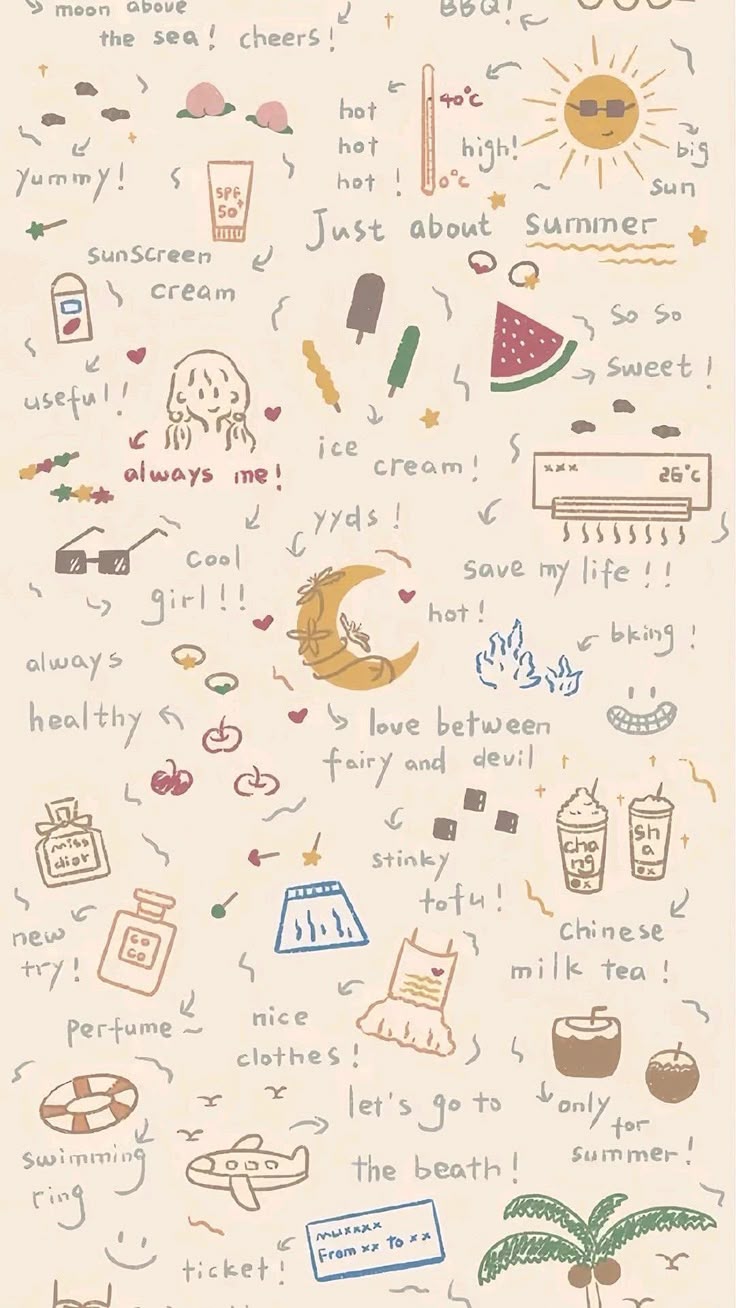 moon above
the sea! cheers!
BBQ!
hot
hot
hot !
40°c
0°c
high!
big
sun
yummy!
SPF
50+
sunscreen
cream
Just about summer
useful!
always me!
ice
cream!
so so
sweet !
xxx 26°c
save my life !!
cool
girl!!
yyds !
hot!
bking !
always
healthy
love between
fairy and devil
miss
dior
new
try!
co
co
perfume~
stinky
tofu!
cha
ng
sh
a
chinese
milk tea !
nice
clothes!
only
for
summer!
let's go to
the beath!
swimming
ring
ticket!
From xx to xx